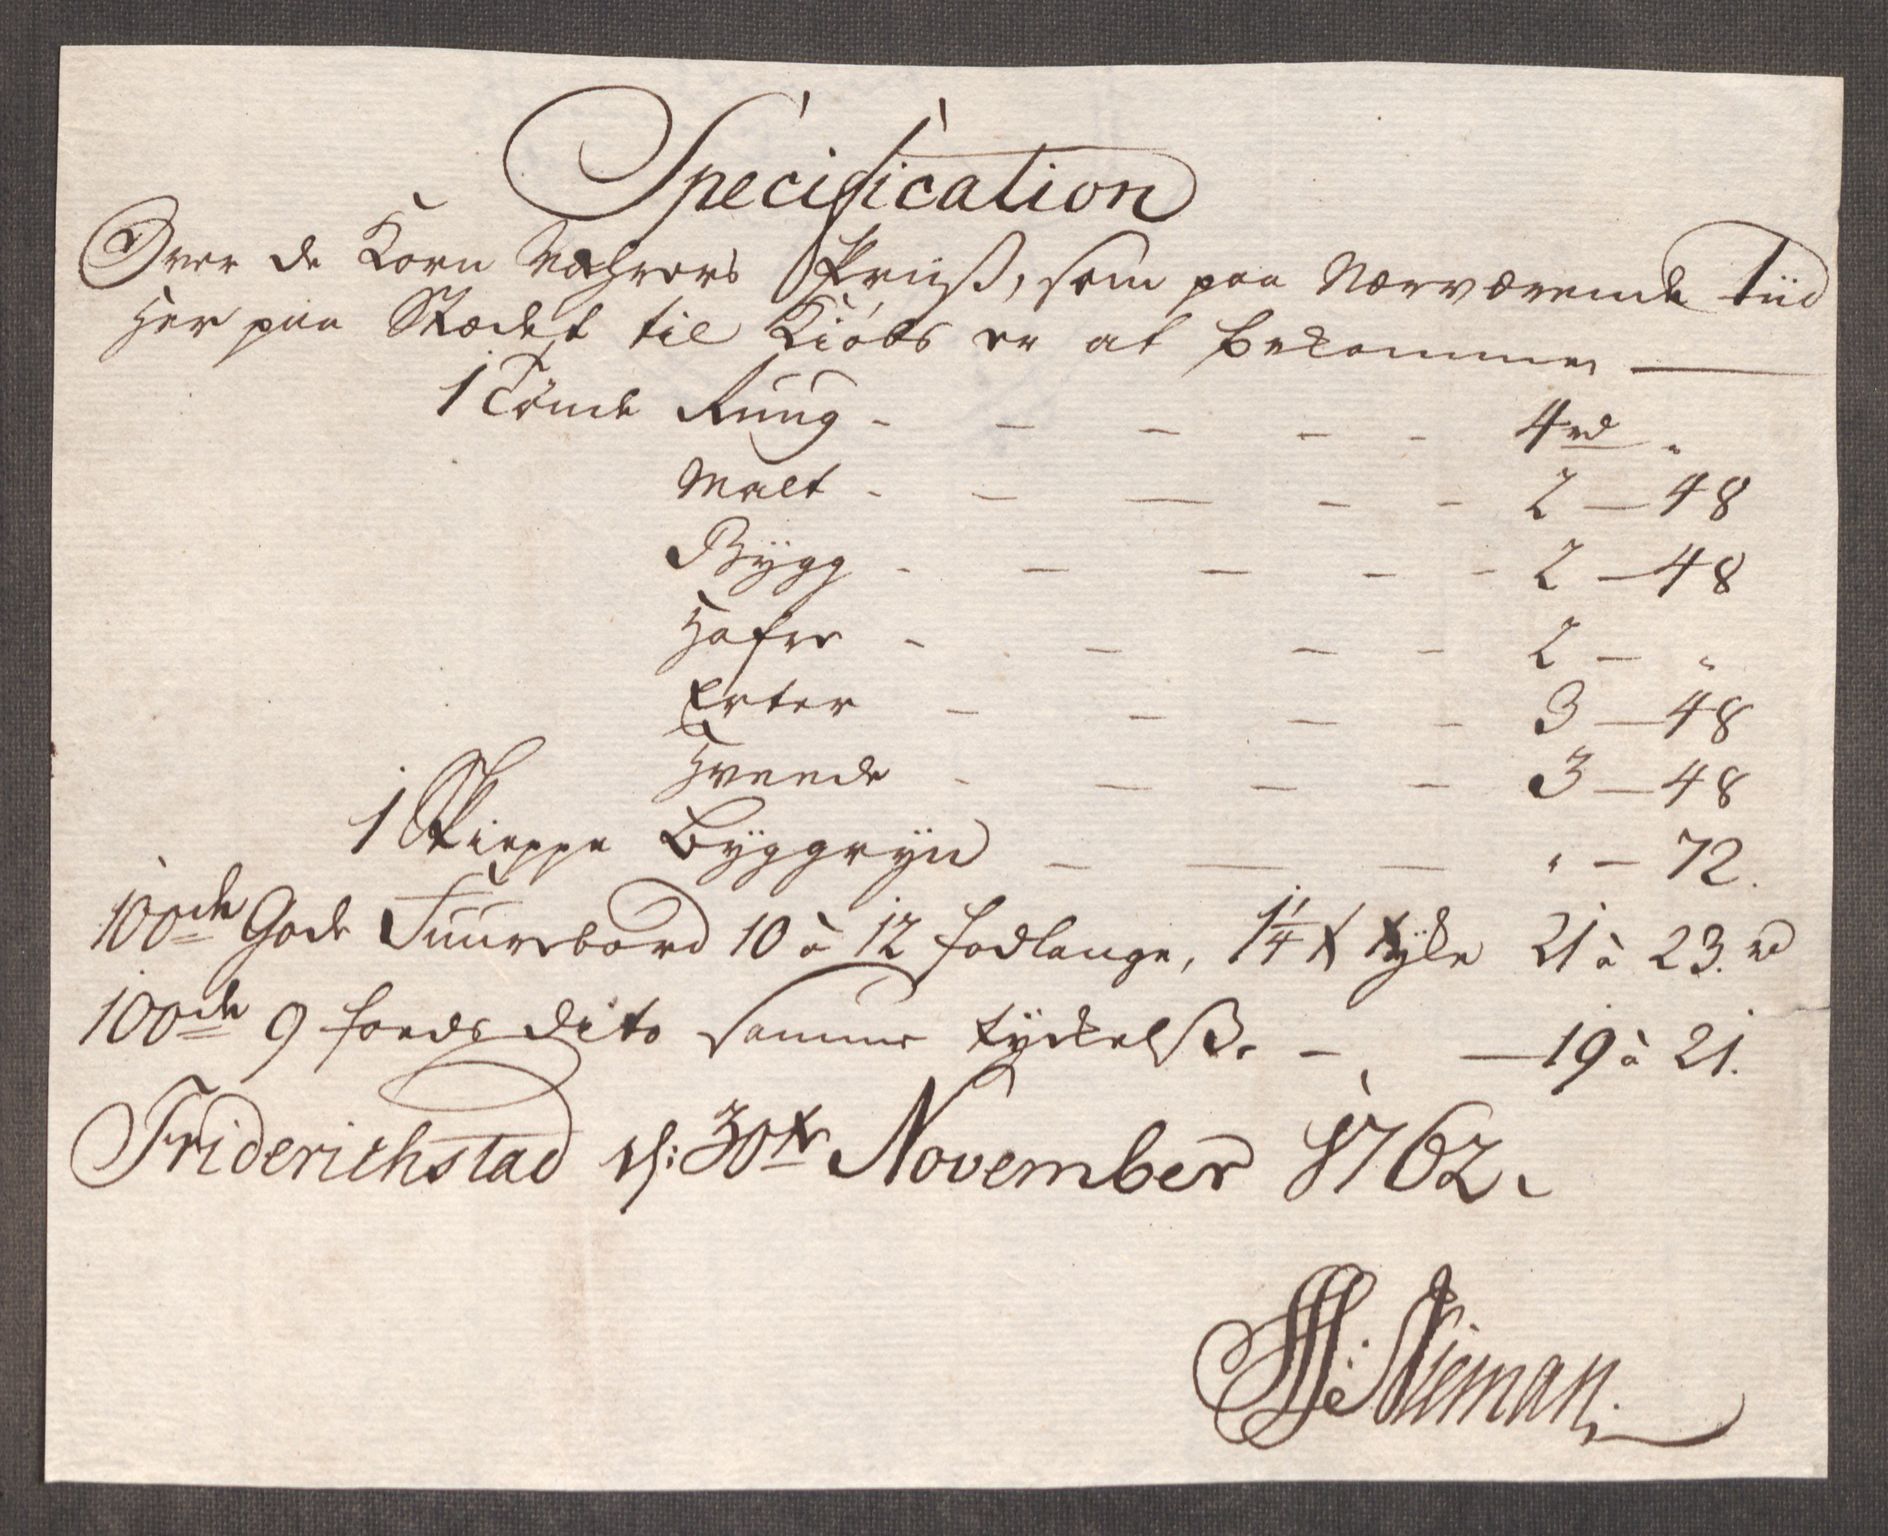 Specification
Over de Korn Wahrers Priiß, som paa Nærværende Tiid
Her paa Stædet til Kiøbs er at bekomme,
1 Tønde Rung - - - - - 4 rd "
Malt - - - - - 2 - 48
Bÿgg - - - - - 2 - 48
Hafre - - - - 2 - "
Erter - - - - 3 - 48
Hveede - - - - 3 - 48
1 Skieppe Bÿggrÿn - - - " - 72.
100de Gode Fuurebord 10 à 12 fodlange, 1 1/4 tÿke 21 à 23. rd
100de 9 foeds dito samme tÿckelße - - 19 à 21.
Friderichstad d: 30te November 1762.
Nieman